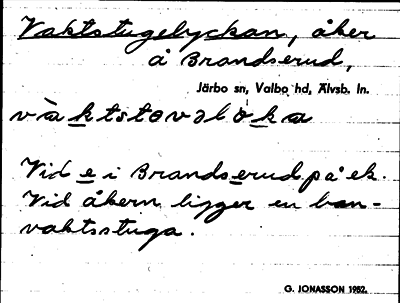 Vaktstugelyckan, åker
å Brandserud,
Järbo sn, Valbo hd, Älvsb. ln.
và ktstəvəlò ka
Vid e i Brandserud på ek.
Vid åkern ligger en ban-
vaktsstuga.
G. JONASSON 1982.